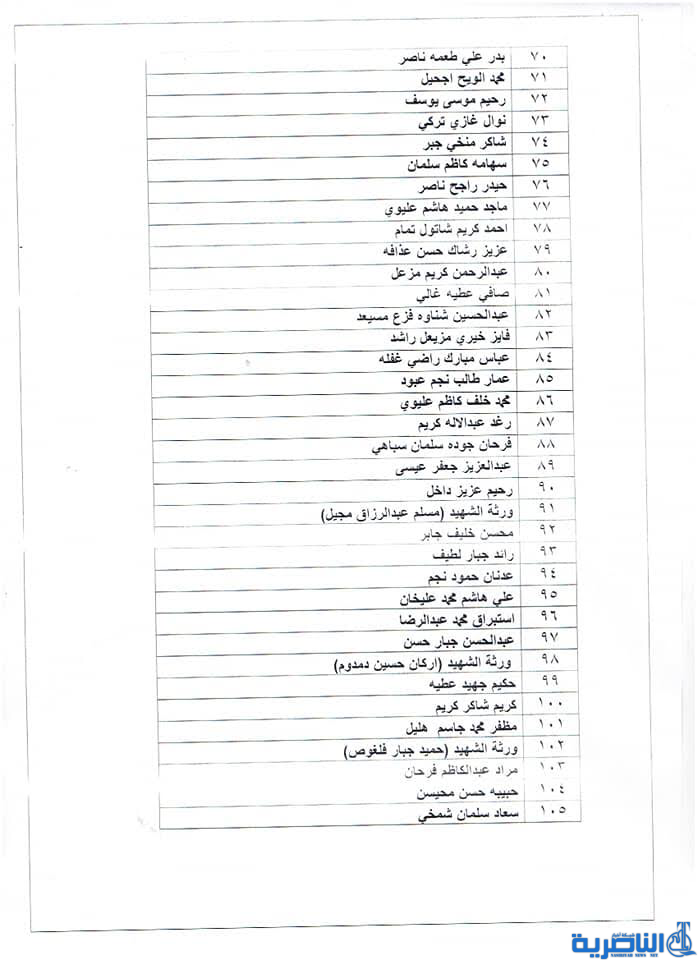 ٧٠ بدر علي طعمه ناصر
٧١ محمد الويح اجحيل
٧٢ رحيم موسى يوسف
٧٣ نوال غازي تركي
٧٤ شاكر منخي جبر
٧٥ سهامه كاظم سلمان
٧٦ حيدر راجح ناصر
٧٧ ماجد حميد هاشم عليوي
٧٨ احمد كريم شاتول تمام
٧٩ عزيز رشاك حسن عذافه
٨٠ عبدالرحمن كريم مزعل
٨١ صافي عطيه غالي
٨٢ عبدالحسين شناوه فزع مسيعد
٨٣ فايز خيري مزيعل راشد
٨٤ عباس مبارك راضي غفله
٨٥ عمار طالب نجم عبود
٨٦ محمد خلف كاظم عليوي
٨٧ رغد عبدالاله كريم
٨٨ فرحان جوده سلمان سباهي
٨٩ عبدالعزيز جعفر عيسى
٩٠ رحيم عزيز داخل
٩١ ورثة الشهيد (مسلم عبدالرزاق مجيل)
٩٢ محسن خليف جابر
٩٣ رائد جبار لطيف
٩٤ عدنان حمود نجم
٩٥ علي هاشم محمد عليخان
٩٦ استبراق محمد عبدالرضا
٩٧ عبدالحسن جبار حسن
٩٨ ورثة الشهيد (اركان حسين دمدوم)
٩٩ حكيم جهيد عطيه
١٠٠ كريم شاكر كريم
١٠١ مظفر محمد جاسم هليل
١٠٢ ورثة الشهيد (حميد جبار فلغوص)
١٠٣ مراد عبدالكاظم فرحان
١٠٤ حبيبه حسن محيسن
١٠٥ سعاد سلمان شمخي
شبكة أخبار
الناصرية
NASIRIYAH NEWS NET